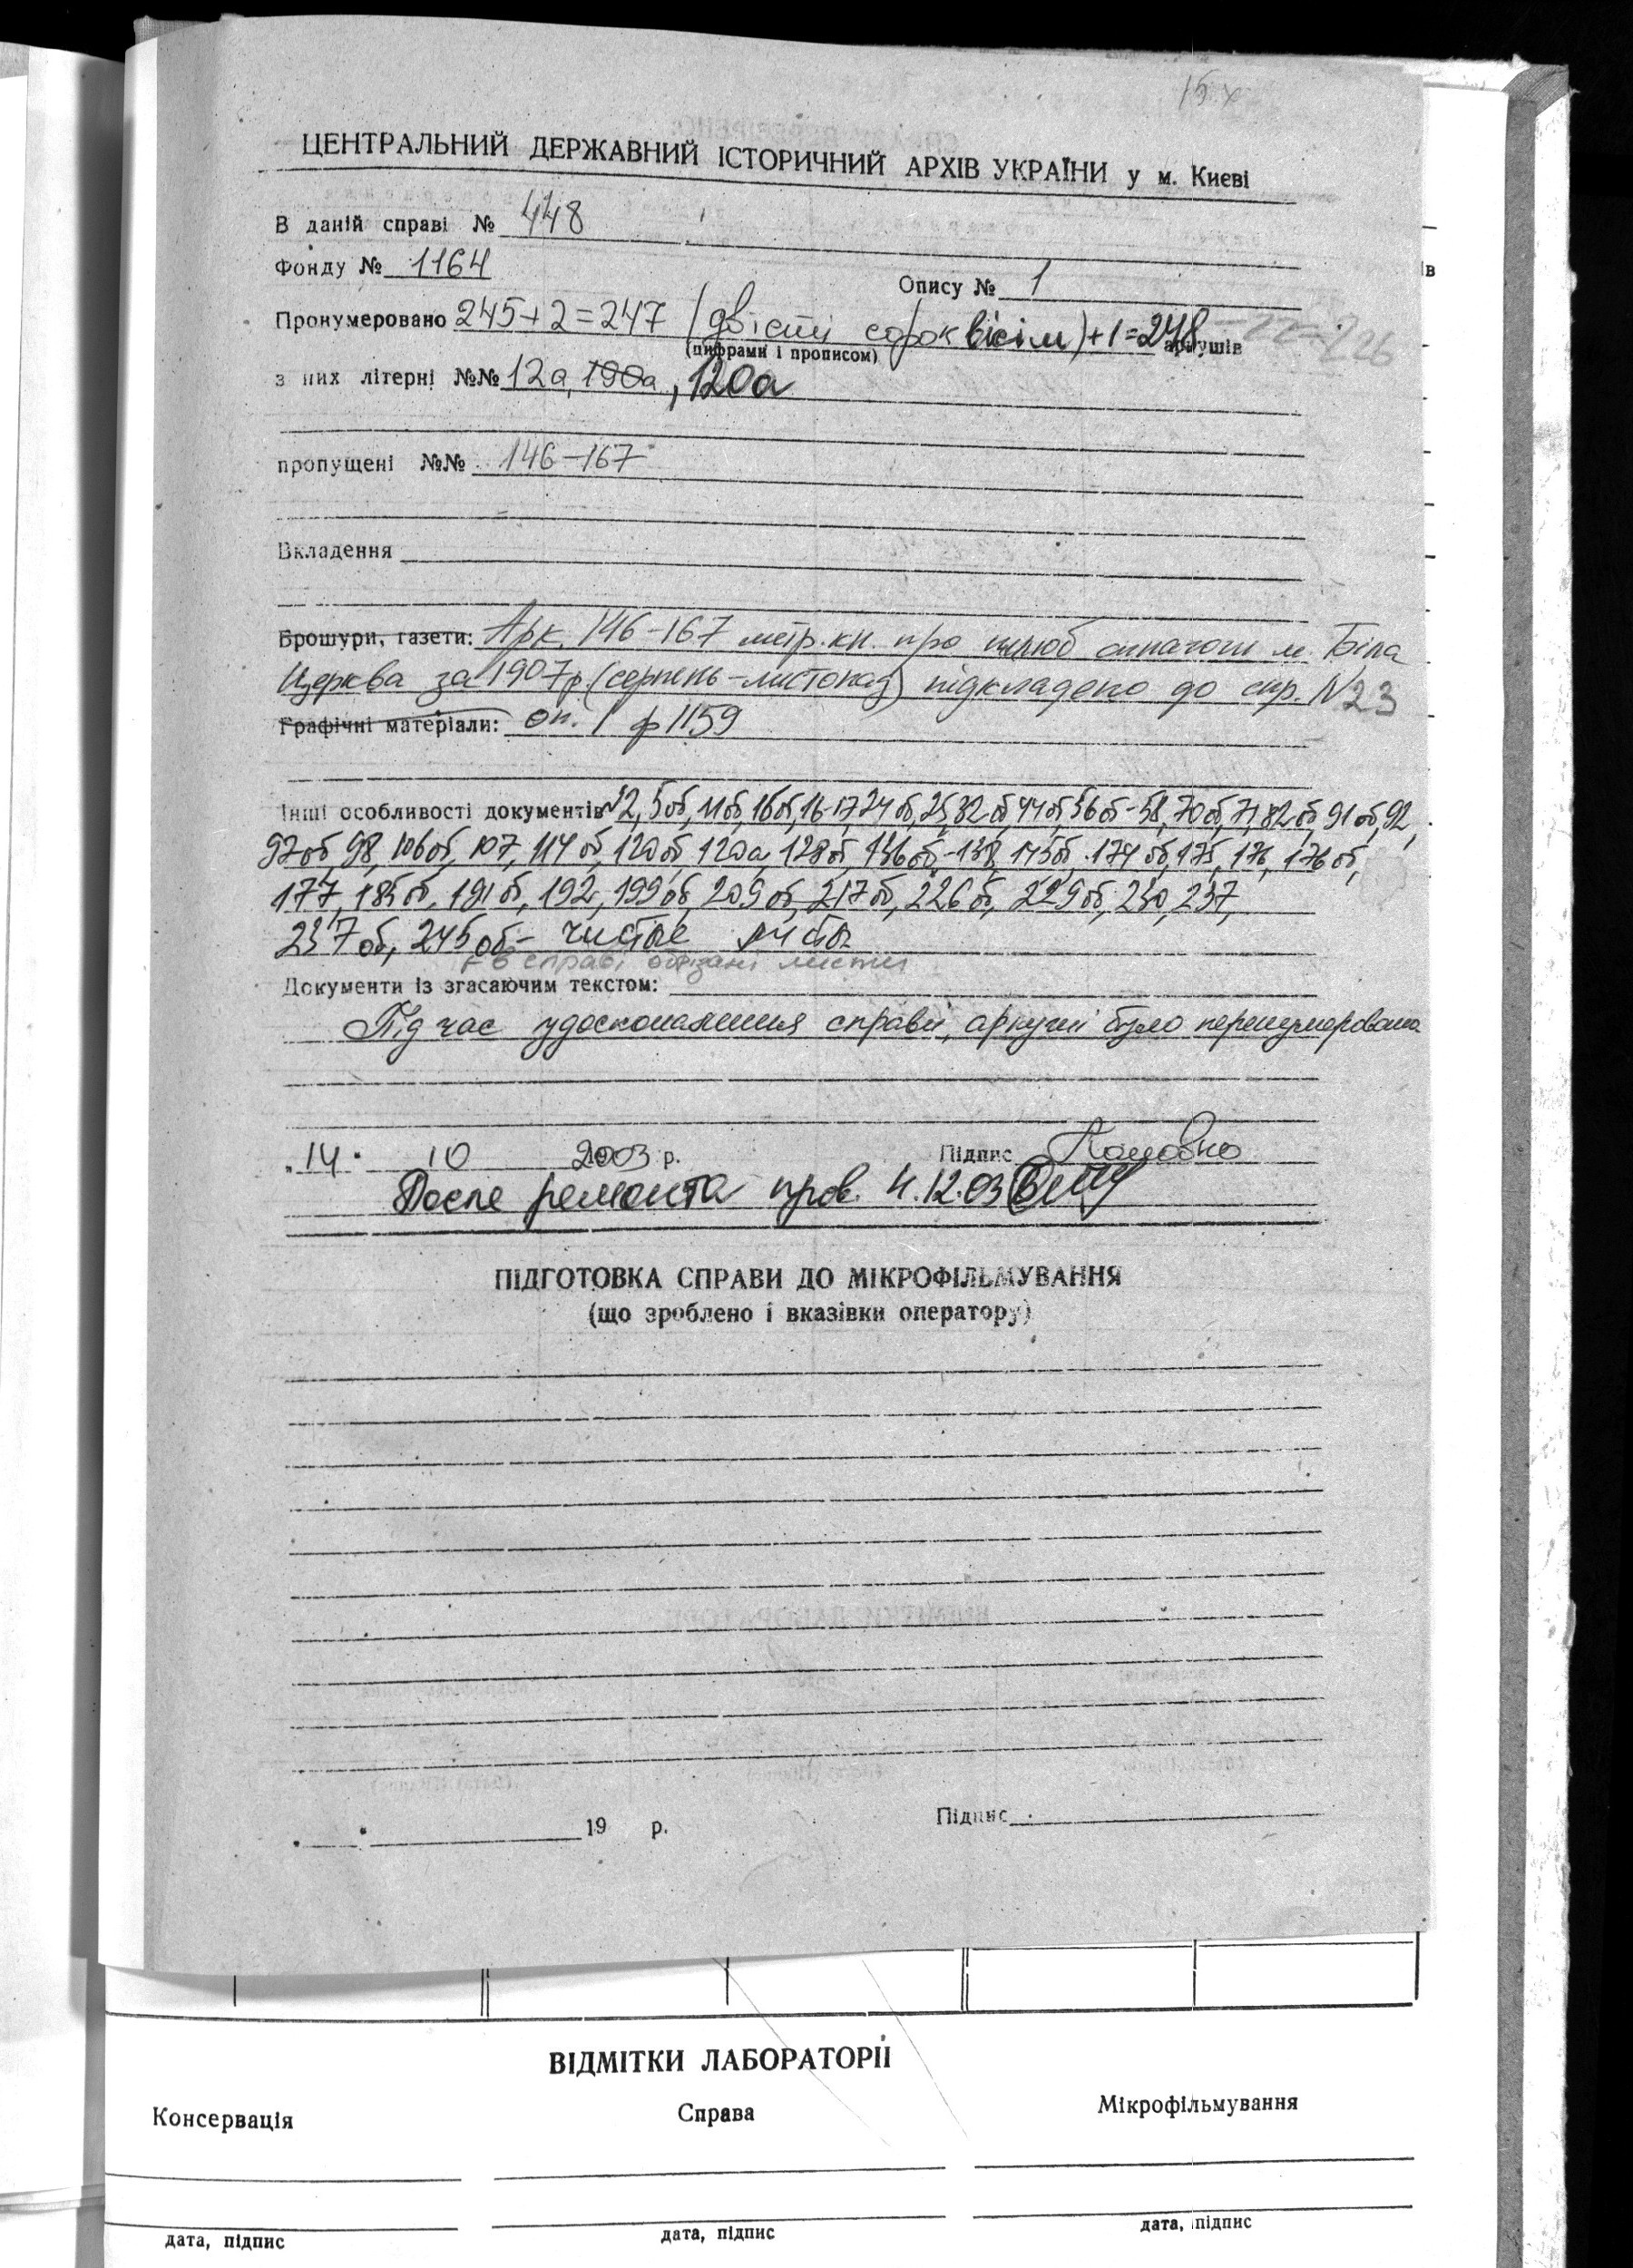 15 х
ЦЕНТРАЛЬНИЙ ДЕРЖАВНИЙ ІСТОРИЧНИЙ АРХІВ УКРАЇНИ у м. Києві
В даній справі № 448
Фонду № 1164
Опису № 1
Пронумеровано 245+2=247 (двісті сорок вісім)+1=248 аркушів -22=226
(цифрами і прописом)
з них літерні №№ 12а, 190а, 120а
пропущені №№ 146-167
Вкладення
Брошури, газети: Арк. 146-167 метр. кн. про шлюб м. Біла
Церква за 1907р. (серпень-листопад) підкладено до спр. N 23
Графічні матеріали: оп. 1 ф 1159
Інші особливості документів №2, 5об, 11об, 16об, 16-17, 24об, 25, 32об, 44об, 56об-58, 70об, 71, 82об, 91об, 92,
97об, 98, 106об, 107, 114об, 120об, 120а, 128об, 136об-138, 145об, 174об, 175, 176, 176об,
177, 185об, 191об, 192, 199об, 209об, 217об, 226об, 229об, 230, 237,
237об, 245об- чистые листы
в справі обрізані листи
Документи із згасаючим текстом:
Під час удосконалення справи, аркуші було перенумеровано
14 10 2003 р. Підпис
После ремонта пров. 4.12.03
ПІДГОТОВКА СПРАВИ ДО МІКРОФІЛЬМУВАННЯ
(що зроблено і вказівки оператору)
19 р. Підпис
ВІДМІТКИ ЛАБОРАТОРІЇ
Консервація Справа Мікрофільмування
дата, підпис дата, підпис дата, підпис